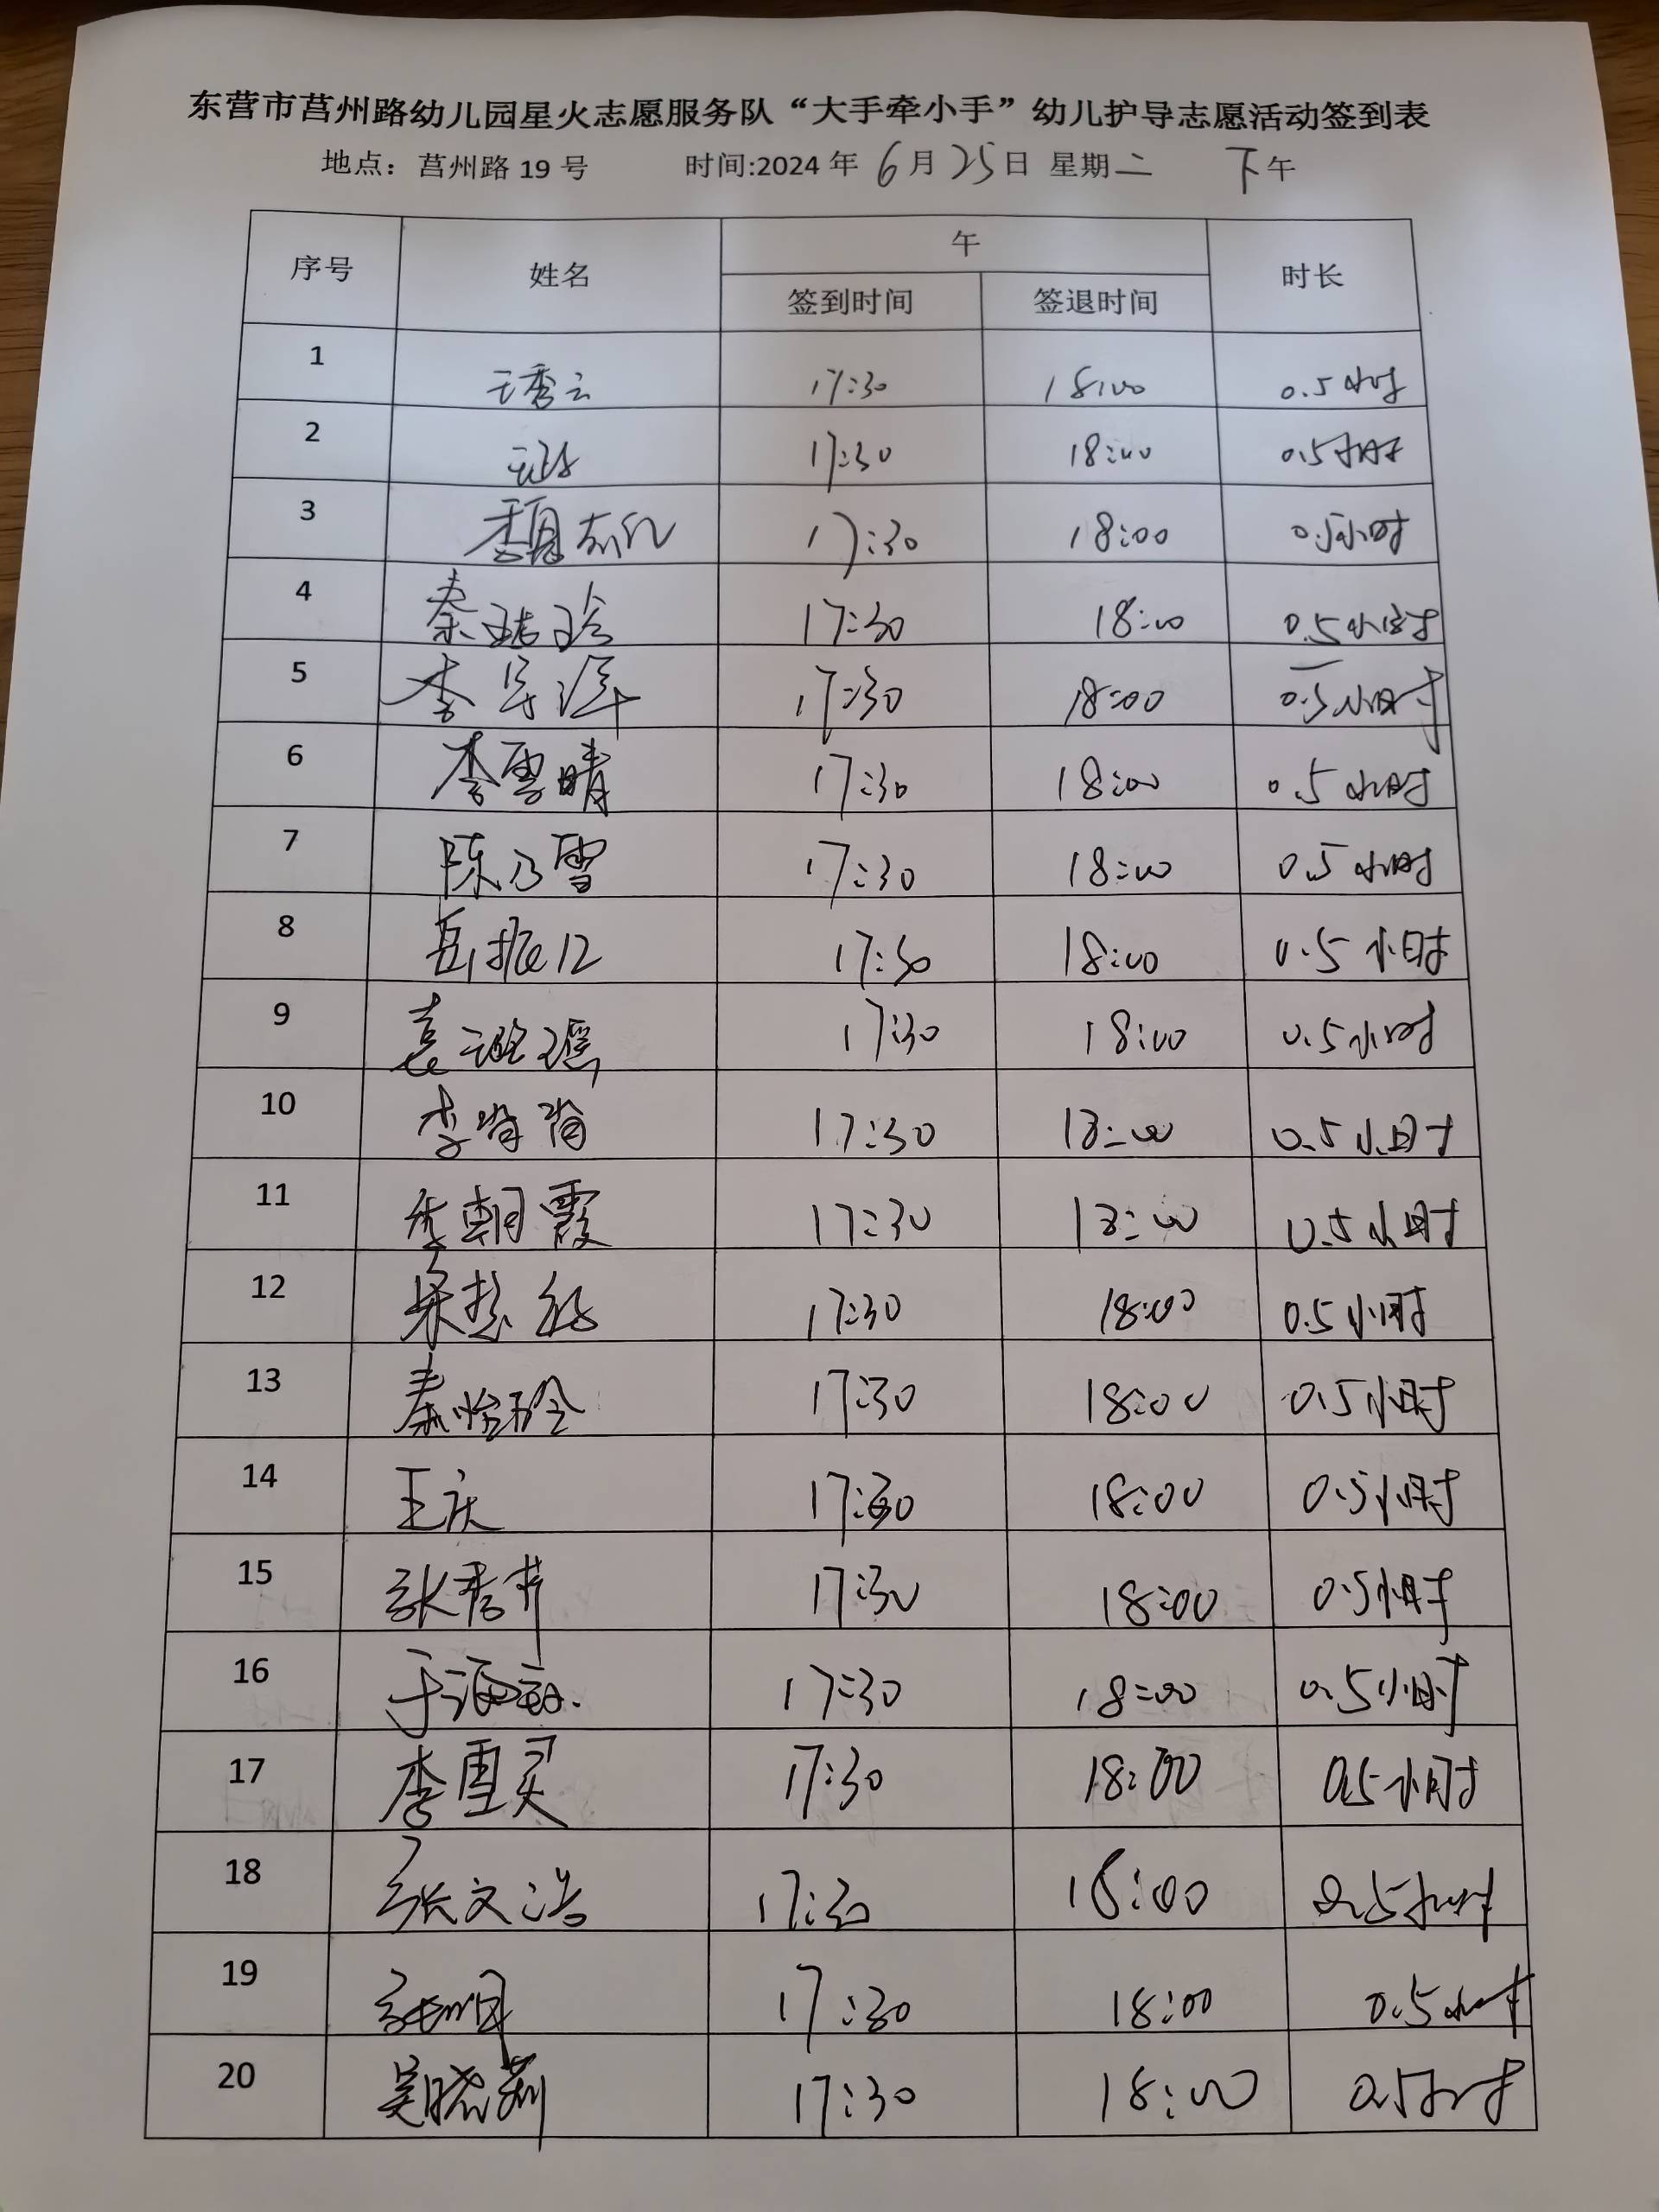 东营市莒州路幼儿园星火志愿服务队“大手牵小手”幼儿护导志愿活动签到表
地点：莒州路 19 号 时间:2024 年 6 月 25 日 星期二 下午
序号 姓名 午 时长
签到时间 签退时间
1 王秀云 17:30 18:00 0.5小时
2 17:30 18:00 0.5小时
3 魏 17:30 18:00 0.5小时
4 秦 17:30 18:00 0.5小时
5 李 17:30 18:00 0.5小时
6 李雪晴 17:30 18:00 0.5小时
7 陈乃雪 17:30 18:00 0.5小时
8 岳振 17:30 18:00 0.5小时
9 袁璐瑶 17:30 18:00 0.5小时
10 李 17:30 18:00 0.5小时
11 李朝霞 17:30 18:00 0.5小时
12 17:30 18:00 0.5小时
13 秦怡玲 17:30 18:00 0.5小时
14 王庆 17:30 18:00 0.5小时
15 张秀 17:30 18:00 0.5小时
16 于海 17:30 18:00 0.5小时
17 李雪灵 17:30 18:00 0.5小时
18 张文浩 17:30 18:00 0.5小时
19 张 17:30 18:00 0.5小时
20 吴晓莉 17:30 18:00 0.5小时